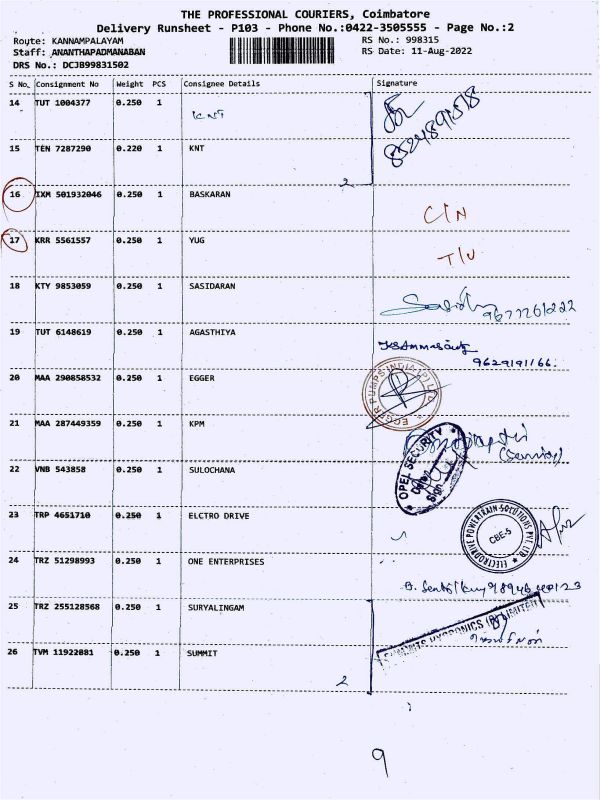 THE PROFESSIONAL COURIERS, Coimbatore
Delivery Runsheet - P103 - Phone No.:0422-3505555 - Page No.:2
Route: KANNAMPALAYAM
RS No.: 998315
Staff: ANANTHAPADMANABAN
RS Date: 11-Aug-2022
DRS No.: DCJB99831502
S No. Consignment No Weight PCS Consignee Details Signature
14 TUT 1004377 0.250 1 KNT
15 TEN 7287290 0.220 1 KNT
2
16 IXM 501932046 0.250 1 BASKARAN C/N
17 KRR 5561557 0.250 1 YUG T/U
18 KTY 9853059 0.250 1 SASIDARAN
19 TUT 6148619 0.250 1 AGASTHIYA
9629191166.
20 MAA 290858532 0.250 1 EGGER EGGER PUMPS INDIA (P) LTD.
21 MAA 287449359 0.250 1 KPM
22 VNB 543858 0.250 1 SULOCHANA OPEL SECURITY
Date
Sign
23 TRP 4651710 0.250 1 ELCTRO DRIVE ELECTRODRIVE POWERTRAIN SOLUTIONS PVT. LTD.
CBE-5
24 TRZ 51298993 0.250 1 ONE ENTERPRISES
25 TRZ 255128568 0.250 1 SURYALINGAM
26 TVM 11922081 0.250 1 SUMMIT
2
9